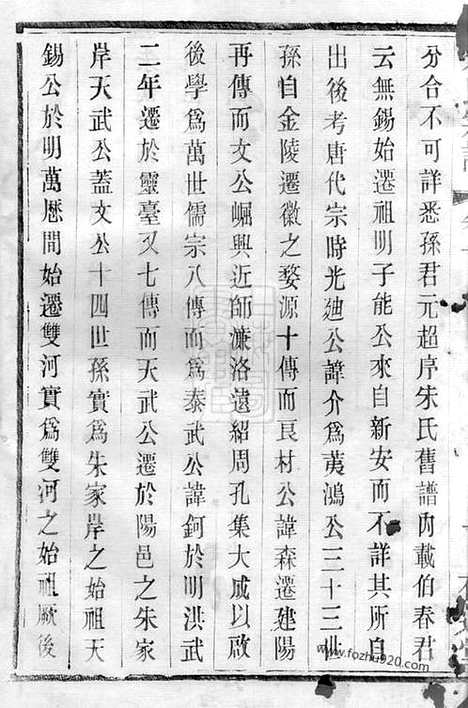 分合不可詳悉孫君元超序朱氏舊譜內載伯春君
云無錫始遷祖明子能公來自新安而不詳其所自
出後考唐代宗時光迪公諱介爲黃鴻公三十三世
孫自金陵遷徽之婺源十傳而良材公諱森遷建陽
再傳而文公崛興近師濂洛遠紹周孔集大成以啟
後學爲萬世儒宗八傳而爲泰武公諱鈳於明洪武
二年遷於靈臺又七傳而天武公遷於陽邑之朱家
岸天武公蓋文公十四世孫實爲朱家岸之始祖天
錫公於明萬曆間始遷雙河實爲雙河之始祖厥後
www.fozhu920.com